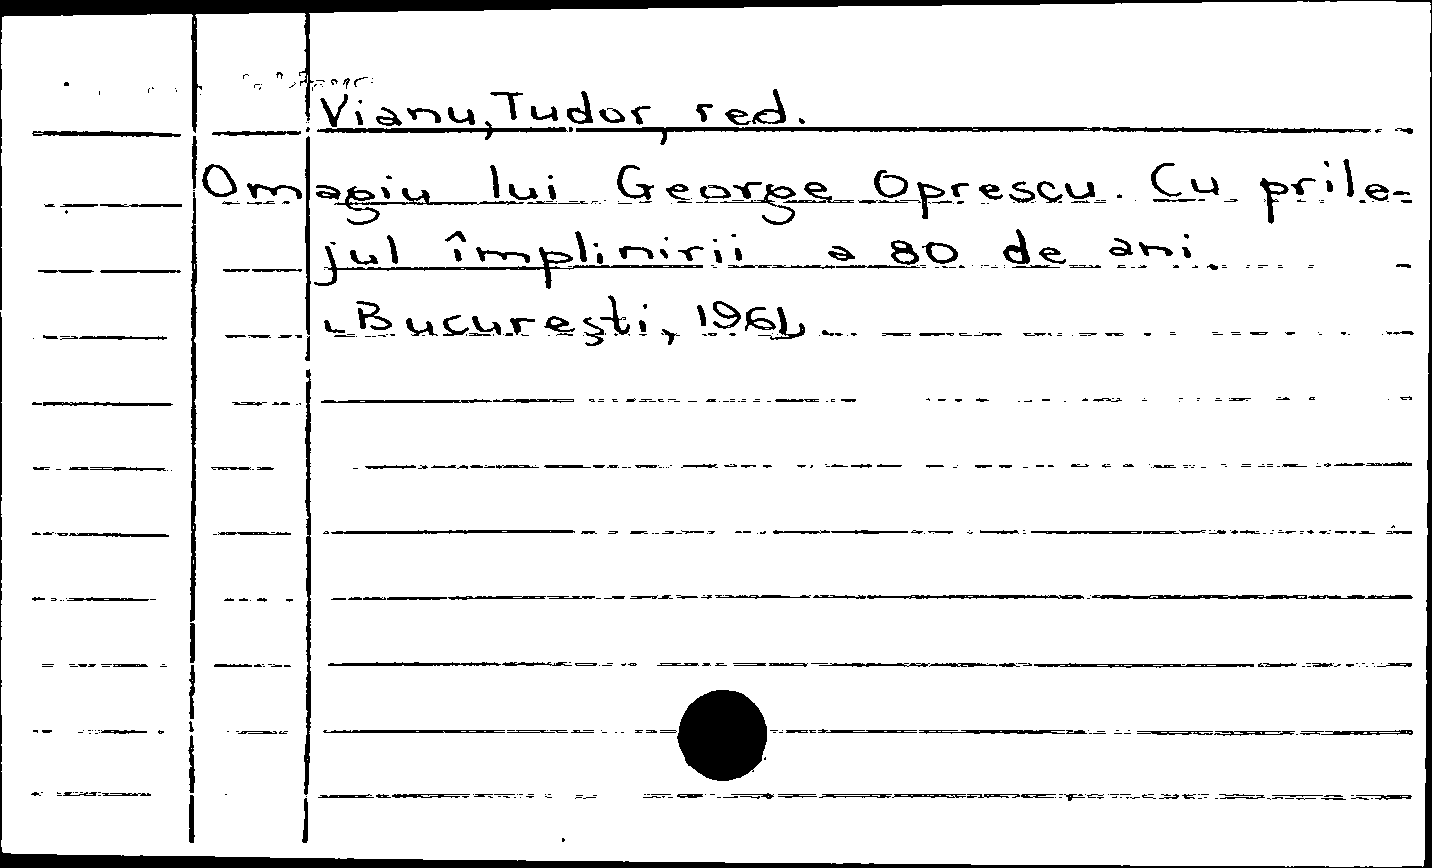 Vianu, Tudor, red.
Omagiu lui George Oprescu. Cu prile-
jul împlinirii a 80 de ani.
Bucureşti, 1961.